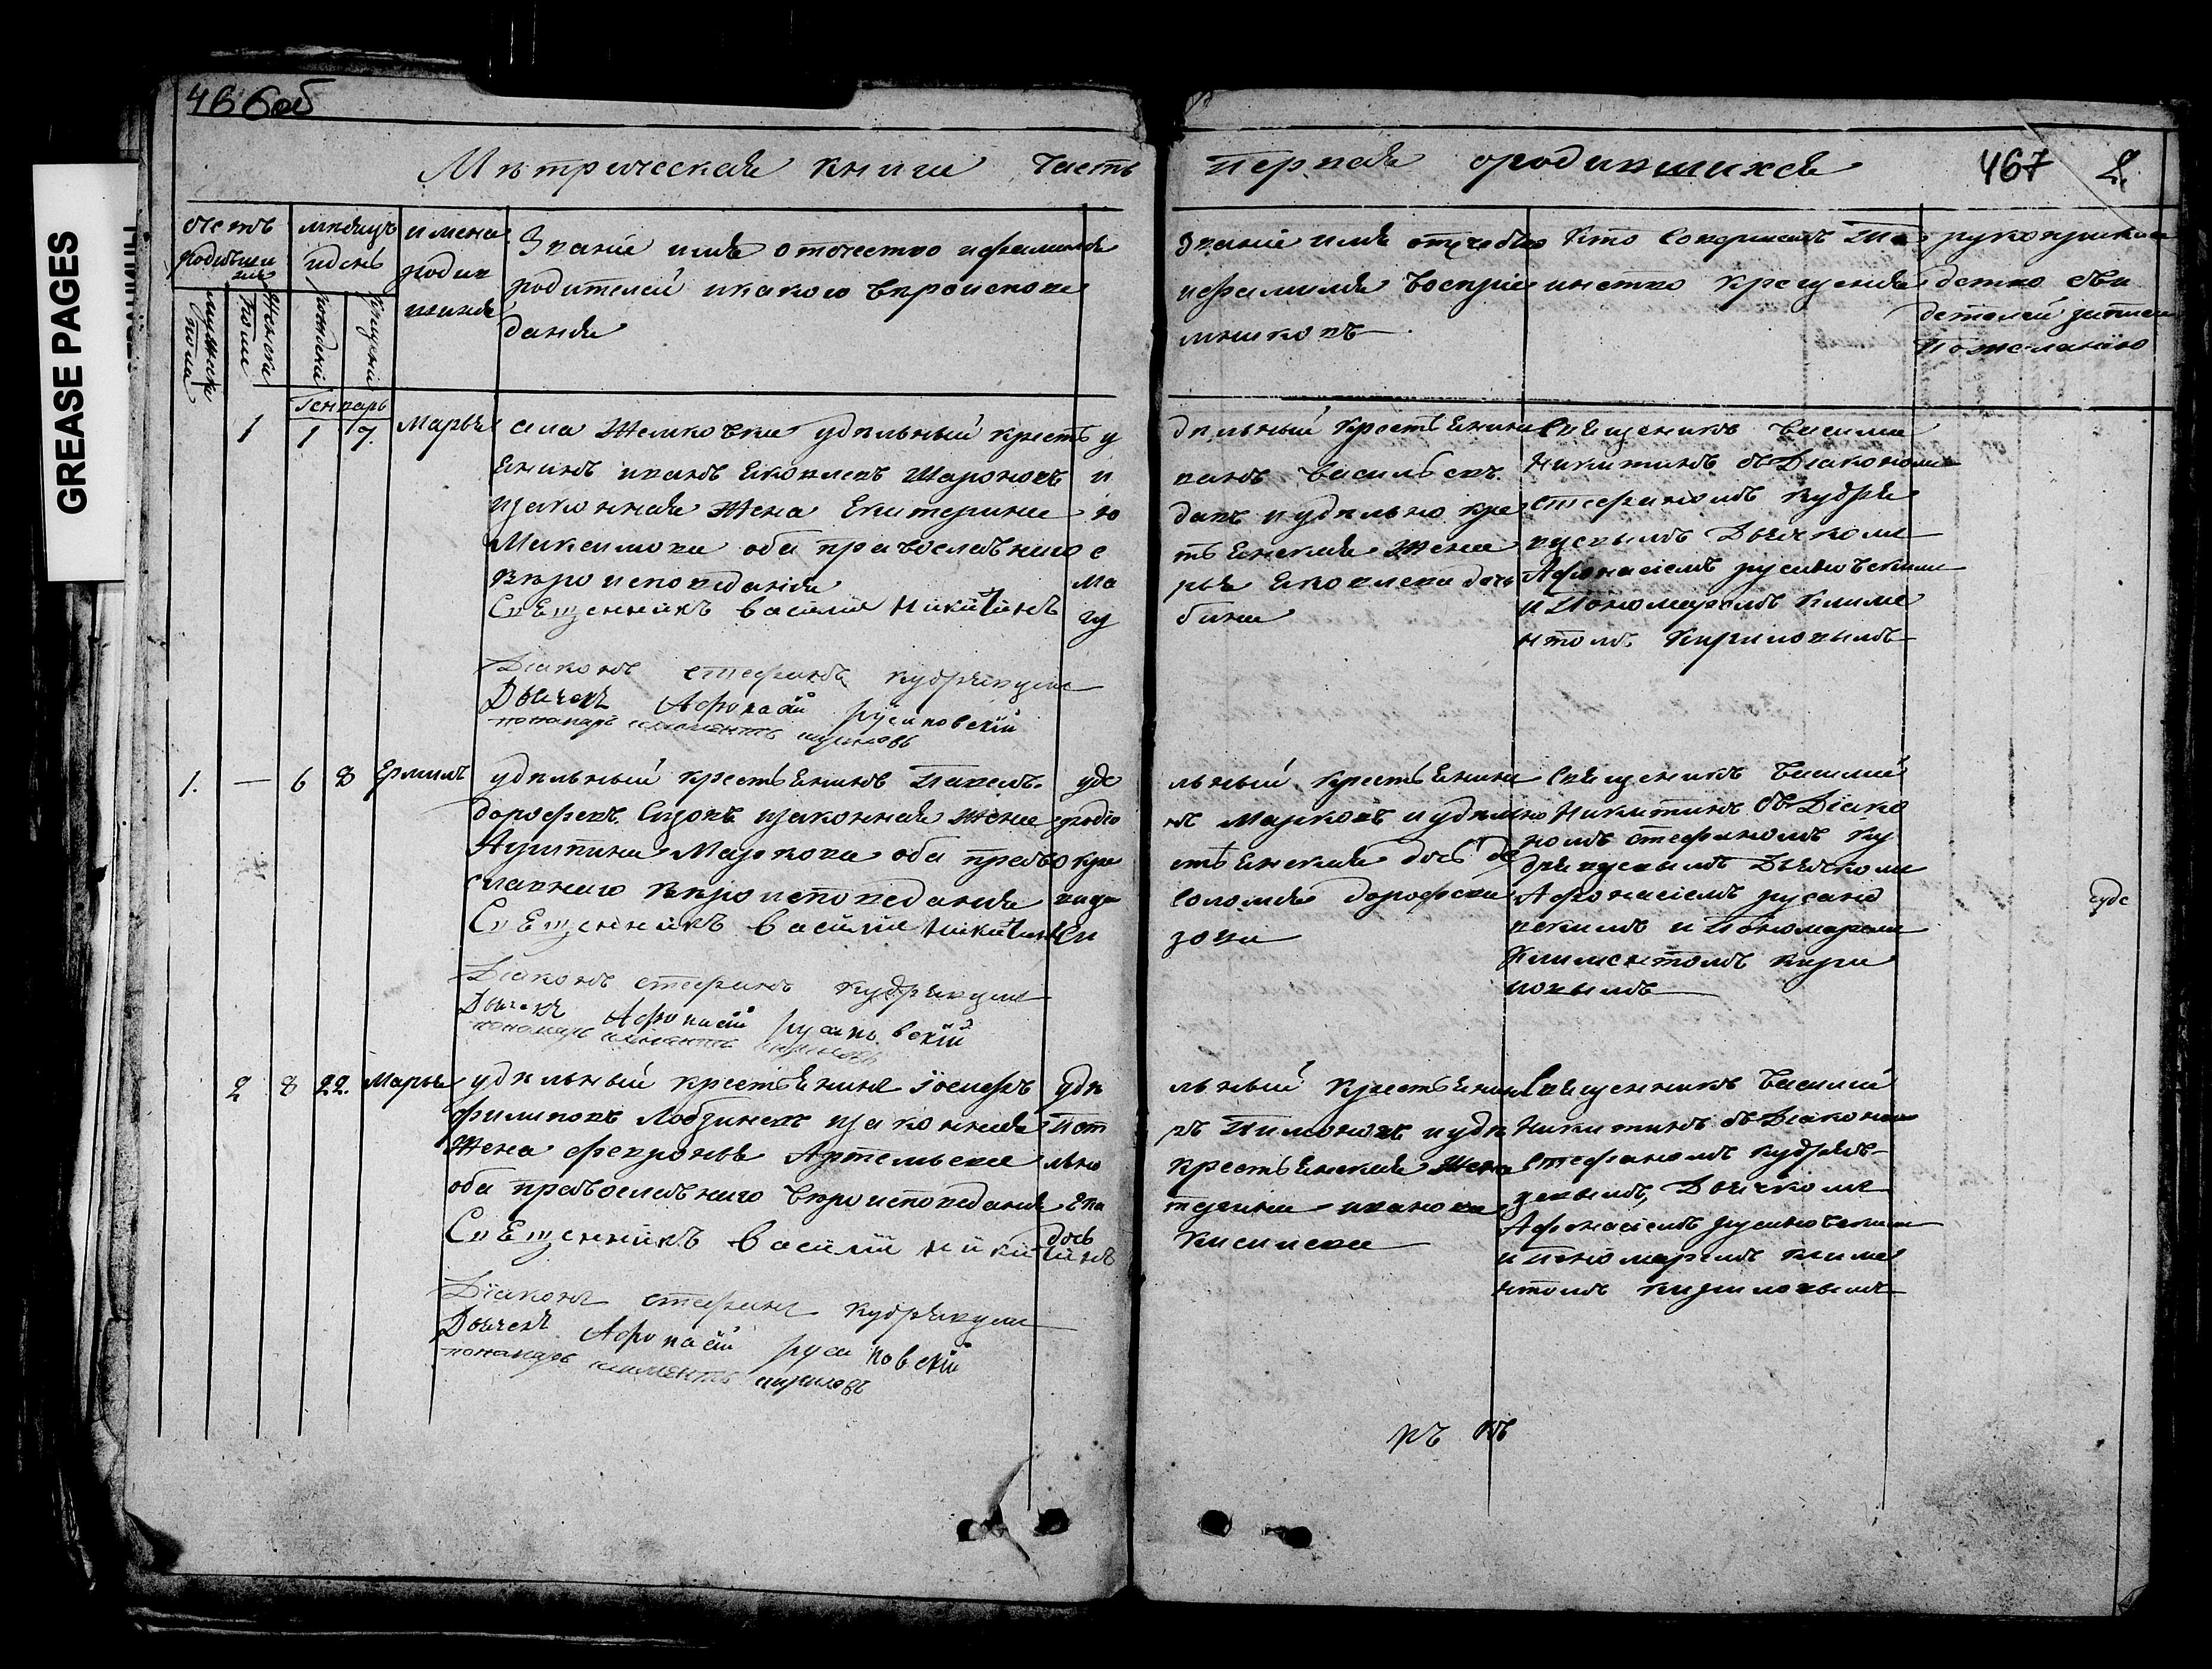 466об
Метрическая книги часть первая ородившихся 467 2.
GREASE PAGES
счетъ родившихся
мужеска пола
женска пола
месяцъ идень
рождения
крещения
имена родившихся
Званіе имя отечество ифамилия
родителей икакого вероиспове
дания
Званіе имя отечебство
ифамилия восприе
мниковъ
Кто совершалъ Та
инство крещения
рукоприкла
детво сви
детелей записи
пожеланію
Генварь
1 1 7. Марья
села Жемковки удельный кресть
Енинъ иванъ Яковлевъ Шароновъ
изаконная жена Екатерина
Максимова оба православнаго
вероисповедания
СвЕщенникъ василий Никитинъ
Діаконъ стефанъ кудрявцевъ
Дьячекъ Афонасий русановский
пономарь климентъ кириловъ
у
и
ю
с
ма
гу
дельный крестьЕнинъ
ванъ Васильевъ
давъ иудельно кре
тьЕнская жена
рья Яковлева дочь
бина
Священикъ Василий
Никитинъ съ Діакономъ
стефаномъ кудря
вцевымъ Дьячкомъ
Афонасіемъ русановскимъ
и Пономаремъ климе
нтомъ кириловымъ
1. — 6 8 Ермилъ
удельный крестьЕнинъ Павелъ
дорофеевъ Сизовъ изаконная жена
Агрипина Маркова оба право
славнаго вероисповедания
СвЕщенникъ василий никитинъ
Діаконъ стефанъ кудрявцевъ
Дьячекъ Афонасий русановский
пономарь климентъ кириловъ
уде
родіо
кре
Си
льный крестьЕнинъ
нъ Марковъ иудельно
стьЕнская дочь де
соломия дорофеева
зова
Священикъ Василий
Никитинъ съ Діако
номъ стефаномъ ку
дрявцевымъ Дьячкомъ
Афонасіемъ русано
вскимъ и Пономаремъ
Климентомъ кири
ловымъ
2 8 22. Марья
удельный крестьЕнинъ Іосифъ
филиповъ Лобзиневъ изаконная
жена феврония Артемьева
оба православнаго вероисповедания
СвЕщенникъ василий никитинъ
Діаконъ стефанъ кудрявцевъ
Дьячекъ Афонасий русановский
пономарь климентъ кириловъ
уде
Пет
льно
Ека
дочь
льный крестьЕнинъ
ръ Пимоновъ иуде
крестьЕнская жена
терина иванова
Киселева
Священникъ Василий
Никитинъ съ Діакономъ
стефаномъ кудряв-
цевымъ, Дьячкомъ
Афонасіемъ русановскимъ
и пономаремъ климе
нтомъ кириловымъ